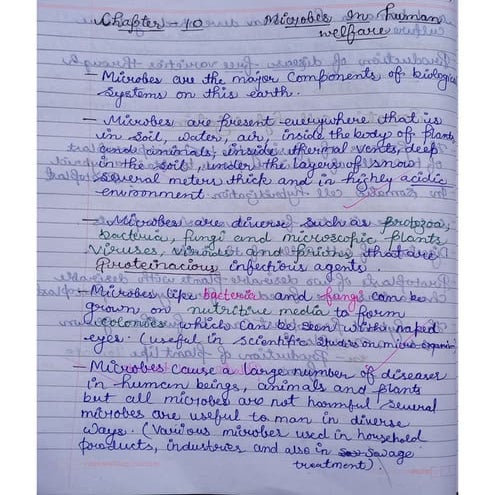 Chapter - 10 Microbes In human
welfare
- Microbes are the major Components of biological
Systems on this earth.
- Microbes are present everywhere that is
in Soil, Water, air, inside the body of Plants
and animals, inside thermal vents, deep
in the soil, under the layers of snow
several meters thick and in highly acidic
environment.
- Microbes are diverse such as protozoa,
bacteria, fungi and microscopic plants
Viruses, viroids and prions that are
Proteinacious infectious agents.
- Microbes like bacteria and fungi can be
grown on nutritive media to form
colonies which can be seen with naped
eyes. (useful in Scientific Studies on micro-organism
- Microbes cause a large number of diseases
in human beings, animals and plants
but all microbes are not harmful several
microbes are useful to man in diverse
ways. (Various microbes used in household
products, industries and also in Sewage
treatment).